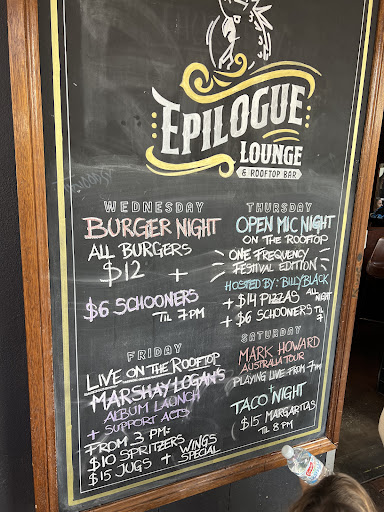 EPILOGUE
LOUNGE
& ROOFTOP BAR
WEDNESDAY
BURGER NIGHT
ALL BURGERS
$12 +
$6 SCHOONERS
TIL 7PM
THURSDAY
OPEN MIC NIGHT
ON THE ROOFTOP
ONE FREQUENCY
FESTIVAL EDITION
HOSTED BY: BILLY BLACK
+ $14 PIZZAS ALL NIGHT
+ $6 SCHOONERS TIL 7
FRIDAY
LIVE ON THE ROOFTOP
MARSHAY LOGAN'S
ALBUM LAUNCH
+ SUPPORT ACTS
FROM 3 PM:
$10 SPRITZERS
$15 JUGS + WINGS SPECIAL
SATURDAY
MARK HOWARD
AUSTRALIA TOUR
PLAYING LIVE FROM 7PM
+
TACO NIGHT
$15 MARGARITAS
TIL 8PM